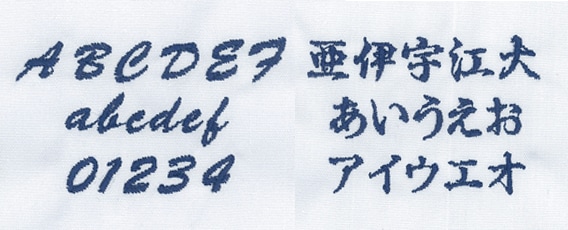 ABCDEF
abcdef
01234
亜伊宇江大
あいうえお
アイウエオ